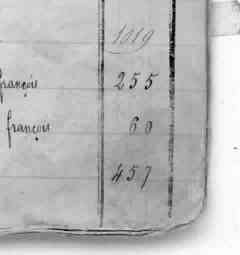 1919
françois 255
françois 60
457